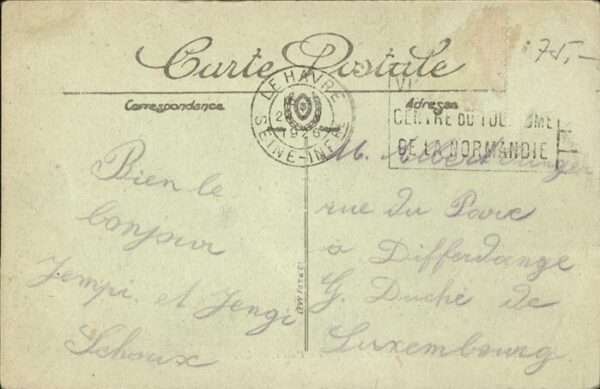 Carte Postale
:75,-
Correspondance
Adresse
LE HAVRE
1926
SEINE-INFRE
CENTRE DU TOURISME
DE LA NORMANDIE
Bien le
bonjour
Jempi et Jengi
Schoux
M. Albert
rue du Parc
à Differdange
G. Duché de
Luxembourg